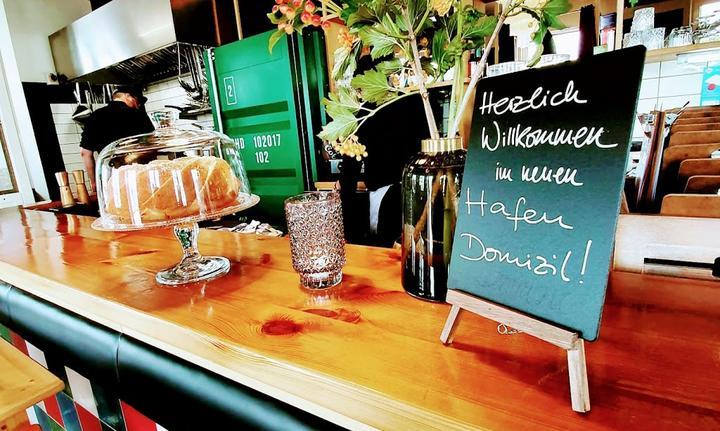 2
HD 102017
102
Herzlich
Willkommen
im neuen
Hafen
Domizil!